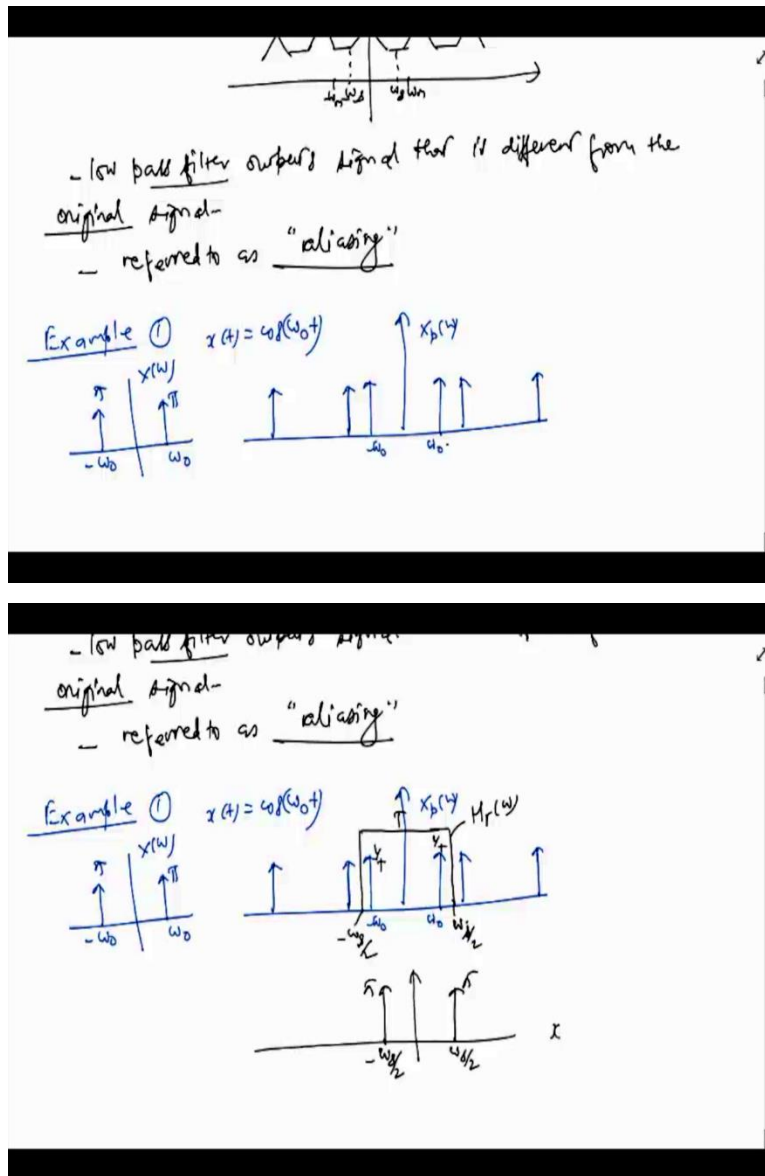 -ωm -ωs ωs ωm
- low pass filter outputs signal that is different from the
original signal-
- referred to as "aliasing"
Example ① x(t) = cos(ω₀t) Xp(ω)
X(ω)
π π
-ω₀ ω₀ -ω₀ ω₀
- low pass filter outputs signal
original signal-
- referred to as "aliasing"
Example ① x(t) = cos(ω₀t) Xp(ω) Hr(ω)
T
X(ω)
π π
-ω₀ ω₀ -ω₀ ω₀
-ωs/2 ωs/2
π π
x
-ωs/2 ωs/2